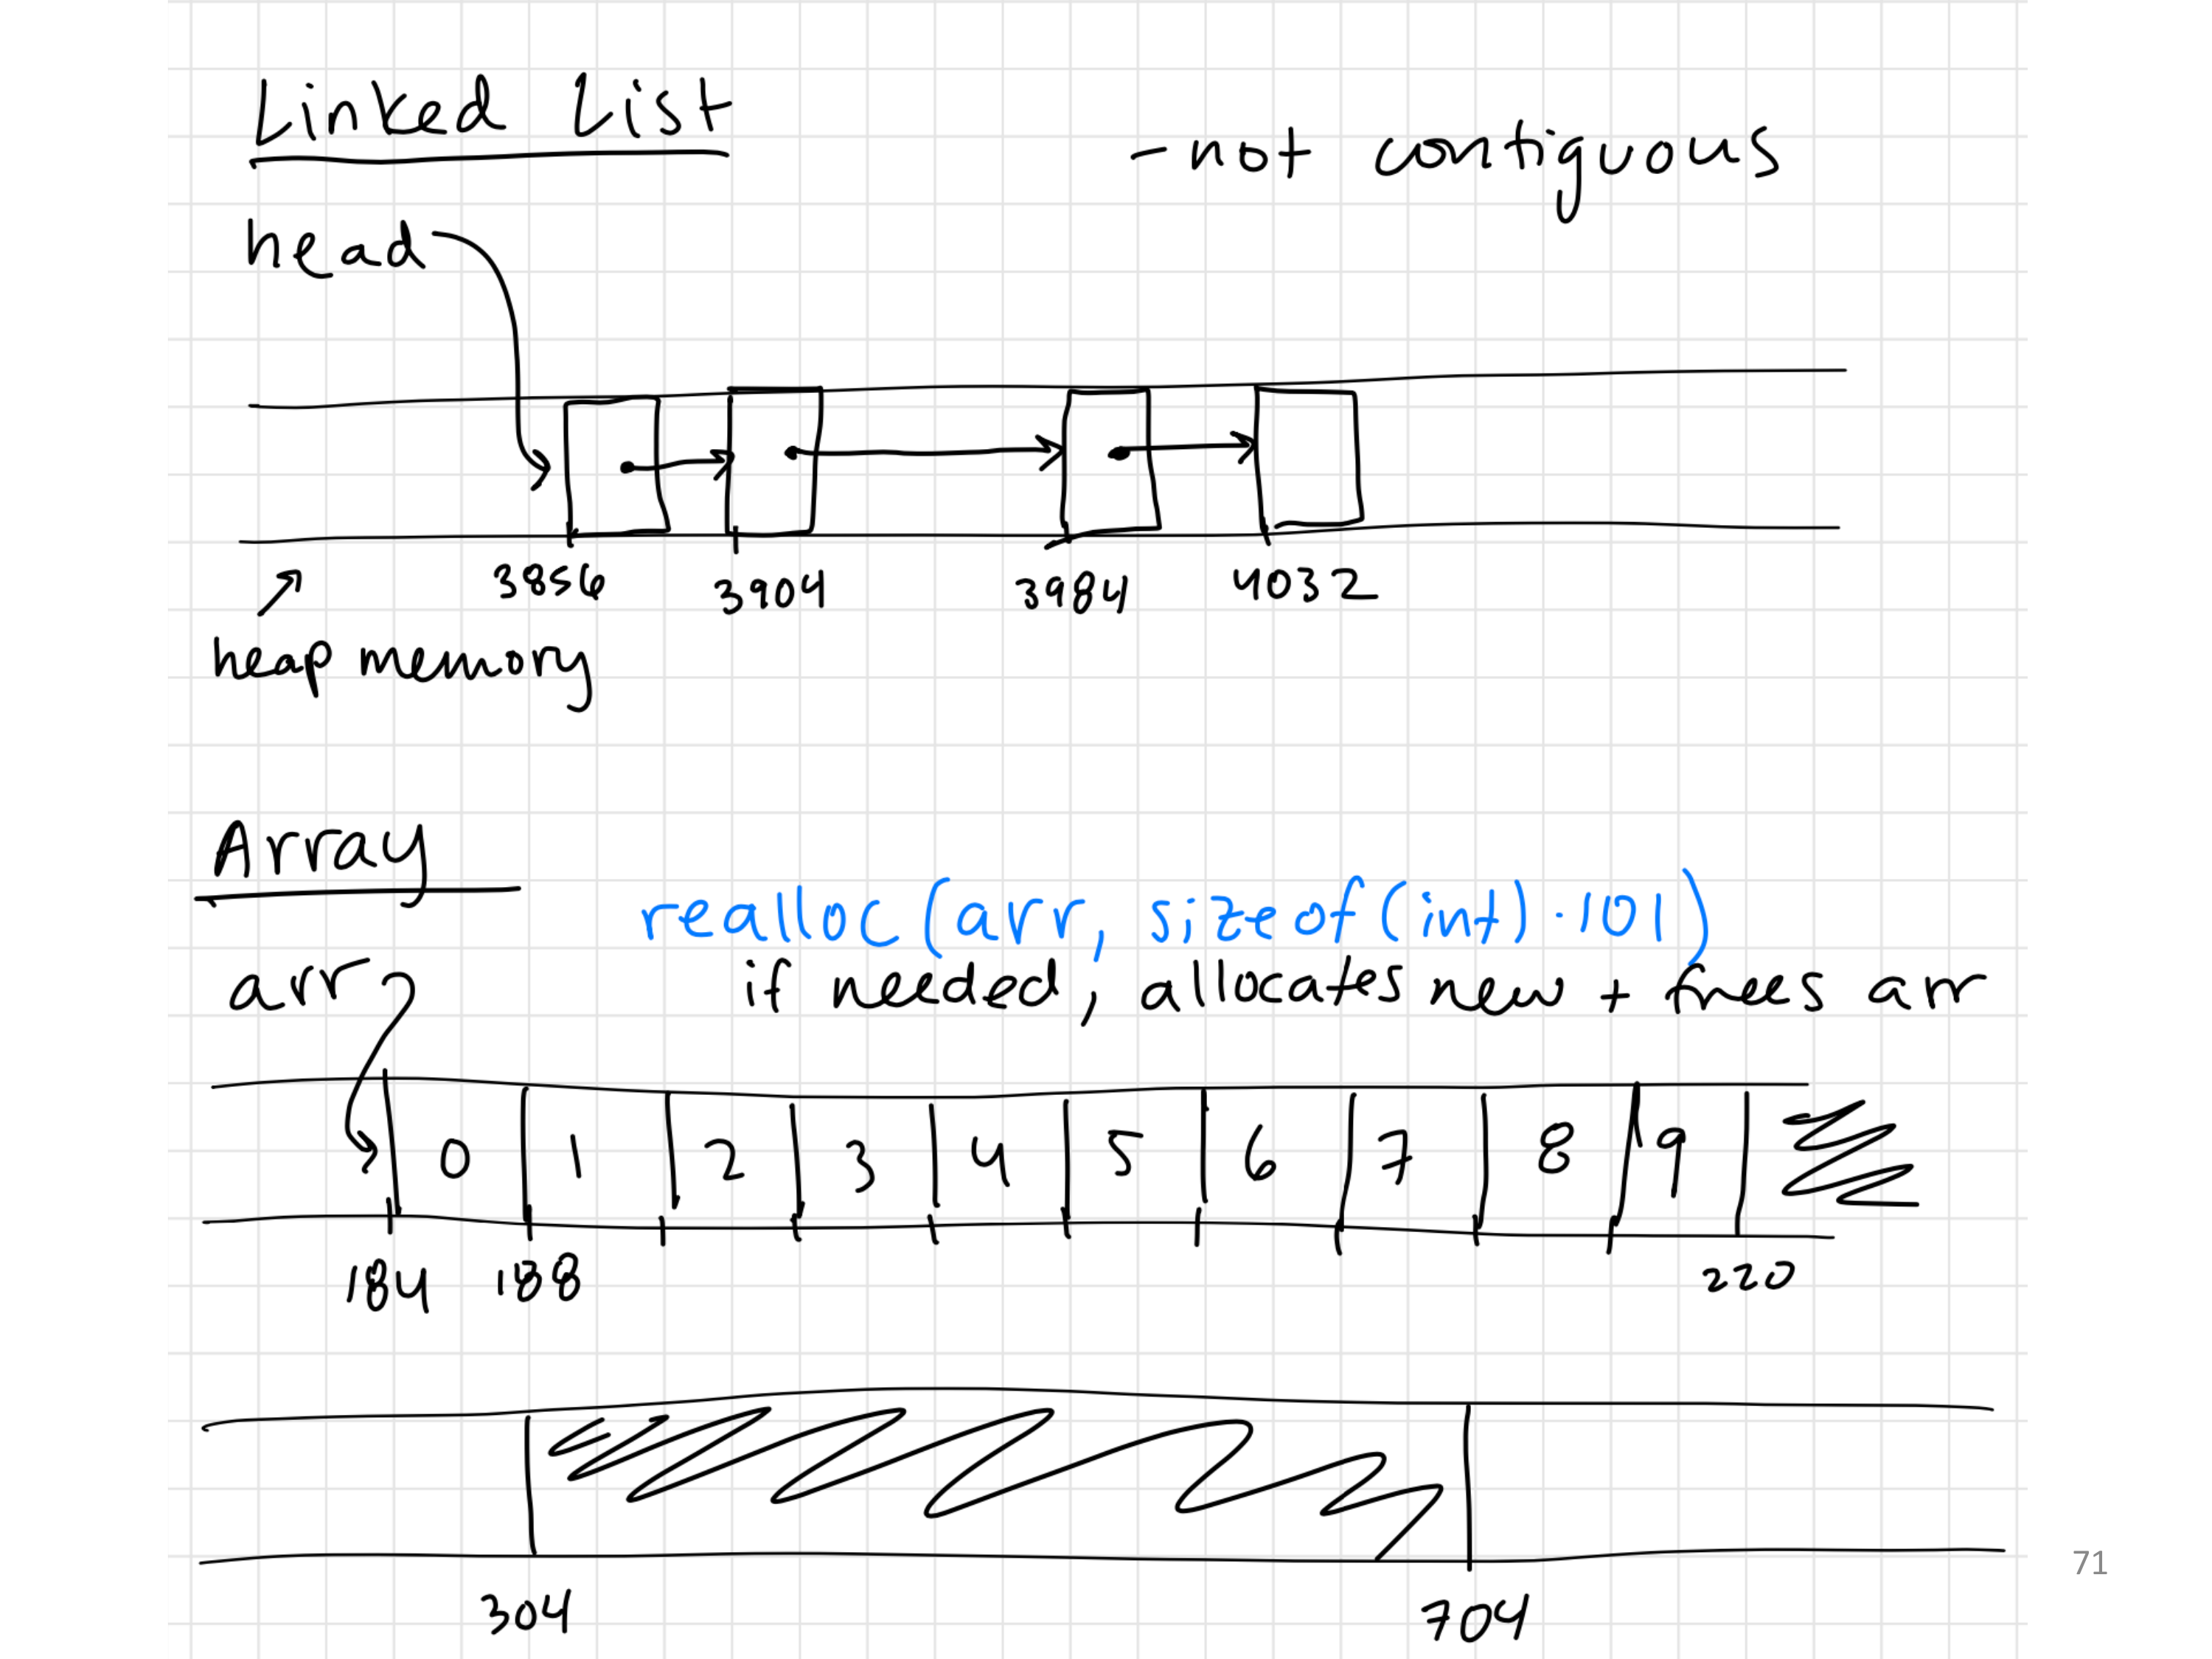 Linked List
- not contiguous
head
3856 3904 3984 4032
heap memory
Array
realloc (arr, sizeof(int)·101)
arr
if needed, allocates new + frees arr
0 1 2 3 4 5 6 7 8 9
184 188 220
304 704
71